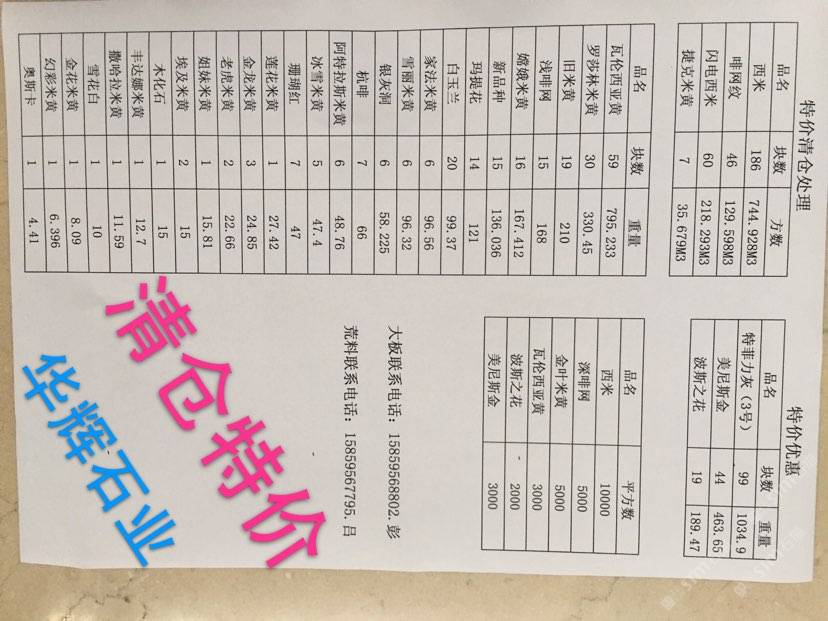 特价清仓处理
品名 块数 方数
西米 186 744.928M3
啡网纹 46 129.598M3
闪电西米 60 218.293M3
捷克米黄 7 35.679M3
品名 块数 重量
瓦伦西亚黄 59 795.233
罗莎林米黄 30 330.45
旧米黄 19 210
浅啡网 15 168
嫦娥米黄 16 167.412
新品种 15 136.036
玛提花 14 121
白玉兰 20 99.37
家法米黄 6 96.56
雪丽米黄 6 96.32
银灰洞 6 58.225
杭啡 7 66
阿特拉斯米黄 6 48.76
冰雪米黄 5 47.4
珊瑚红 7 47
莲花米黄 1 27.42
金龙米黄 3 24.85
老虎米黄 2 22.66
姐妹米黄 1 15.81
埃及米黄 2 15
木化石 1 15
丰达娜米黄 1 12.7
撒哈拉米黄 1 11.59
雪花白 1 10
金花米黄 1 8.09
幻彩米黄 1 6.396
奥斯卡 1 4.41
特价优惠
品名 块数 重量
特菲力灰（3号） 99 1034.9
美尼斯金 44 463.65
波斯之花 19 189.47
品名 平方数
西米 10000
深啡网 5000
金叶米黄 5000
瓦伦西亚黄 3000
波斯之花 2000
美尼斯金 3000
大板联系电话：15859568802.彭
荒料联系电话：15859567795.吕
清仓特价
华辉石业